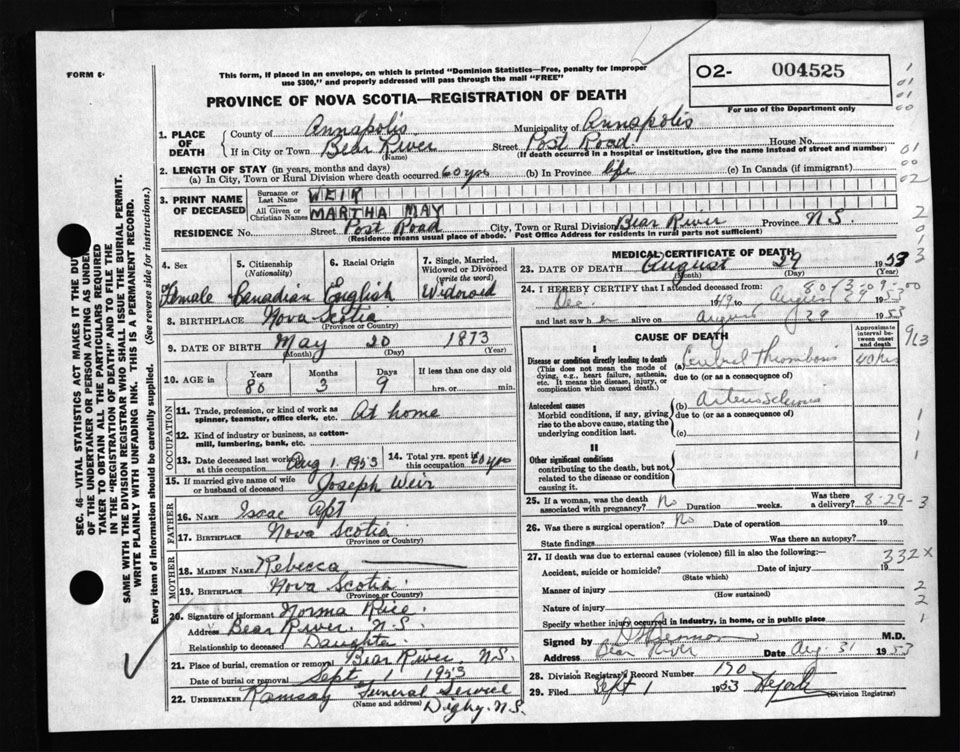 FORM 6.
This form, if placed in an envelope, on which is printed "Dominion Statistics—Free, penalty for improper
use $300," and properly addressed will pass through the mail "FREE"
02- 004525
For use of the Department only
PROVINCE OF NOVA SCOTIA—REGISTRATION OF DEATH
SEC. 46—VITAL STATISTICS ACT MAKES IT THE DUTY
OF THE UNDERTAKER OR PERSON ACTING AS UNDER-
TAKER TO OBTAIN ALL THE PARTICULARS REQUIRED
IN THE "REGISTRATION OF DEATH" AND TO FILE THE
SAME WITH THE DIVISION REGISTRAR WHO SHALL ISSUE THE BURIAL PERMIT.
WRITE PLAINLY WITH UNFADING INK. THIS IS A PERMANENT RECORD.
Every item of Information should be carefully supplied. (See reverse side for instructions.)
1. PLACE OF DEATH
County of Annapolis Municipality of Annapolis
If in City or Town Bear River (Name) Street Post Road House No.
(If death occurred in a hospital or institution, give the name instead of street and number)
2. LENGTH OF STAY (in years, months and days)
(a) In City, Town or Rural Division where death occurred 60 yrs (b) In Province life (c) In Canada (if immigrant)
3. PRINT NAME OF DECEASED
Surname or Last Name WEIR
All Given or Christian Names MARTHA MAY
RESIDENCE No. Street Post Road City, Town or Rural Division Bear River Province N.S.
(Residence means usual place of abode. Post Office Address for residents in rural parts not sufficient)
4. Sex Female
5. Citizenship (Nationality) Canadian
6. Racial Origin English
7. Single, Married, Widowed or Divorced (write the word) Widowed
8. BIRTHPLACE Nova Scotia
(Province or Country)
9. DATE OF BIRTH May 20 1873
(Month) (Day) (Year)
10. AGE in Years 80 Months 3 Days 9 If less than one day hrs. or min.
OCCUPATION
11. Trade, profession, or kind of work as spinner, teamster, office clerk, etc. At home
12. Kind of industry or business, as cotton-mill, lumbering, bank, etc.
13. Date deceased last worked at this occupation Aug 1. 1953
14. Total yrs. spent in this occupation 60 yrs
15. If married give name of wife or husband of deceased Joseph Weir
FATHER
16. NAME Isaac Apt
17. BIRTHPLACE Nova Scotia
(Province or Country)
MOTHER
18. MAIDEN NAME Rebecca
19. BIRTHPLACE Nova Scotia
(Province or Country)
20. Signature of informant Norma Rice.
Address Bear River. N.S.
Relationship to deceased Daughter
21. Place of burial, cremation or removal Bear River. N.S.
Date of burial or removal Sept. 1 1953
22. UNDERTAKER Ramsay Funeral Service
(Name and address) Digby. N.S.
MEDICAL CERTIFICATE OF DEATH
23. DATE OF DEATH August 29 1953
(Month) (Day) (Year)
24. I HEREBY CERTIFY that I attended deceased from
Dec. 1949 to August 29 1953
and last saw her alive on August 29 1953
CAUSE OF DEATH
Approximate interval between onset and death
I
Disease or condition directly leading to death
(This does not mean the mode of
dying, e.g., heart failure, asthenia,
etc. It means the disease, injury, or
complication which caused death.)
(a) Cerebral Thrombosis 40 hrs
due to (or as a consequence of)
Antecedent causes
Morbid conditions, if any, giving
rise to the above cause, stating the
underlying condition last.
(b) Arteriosclerosis
due to (or as a consequence of)
(c)
II
Other significant conditions
contributing to the death, but not
related to the disease or condition
causing it.
25. If a woman, was the death associated with pregnancy? No Duration weeks. Was there a delivery? 8-29-3
26. Was there a surgical operation? No Date of operation 19
State findings Was there an autopsy?
27. If death was due to external causes (violence) fill in also the following:— 332X
Accident, suicide or homicide? Date of injury 19
(State which)
Manner of injury
(How sustained)
Nature of injury
Specify whether injury occurred in industry, in home, or in public place
Signed by M.D.
Address Bear River Date Aug. 31 1953
28. Division Registrar's Record Number 170
29. Filed Sept 1 1953
(Division Registrar)